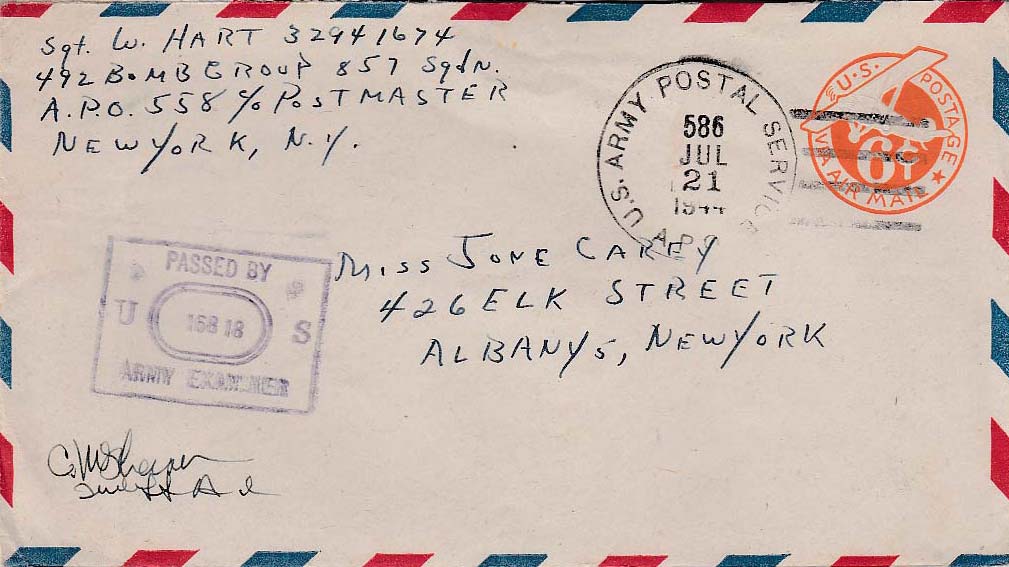 Sgt. W. HART 32941674
492 BOMB GROUP 857 Sqdn.
A.P.O. 558 c/o POSTMASTER
NEW YORK, N.Y.
U.S. ARMY POSTAL SERVICE
A.P.O.
586
JUL
21
1944
U.S. POSTAGE
6¢
VIA AIR MAIL
PASSED BY
U S
ARMY EXAMINER
MISS JUNE CAREY
426 ELK STREET
ALBANY 5, NEW YORK